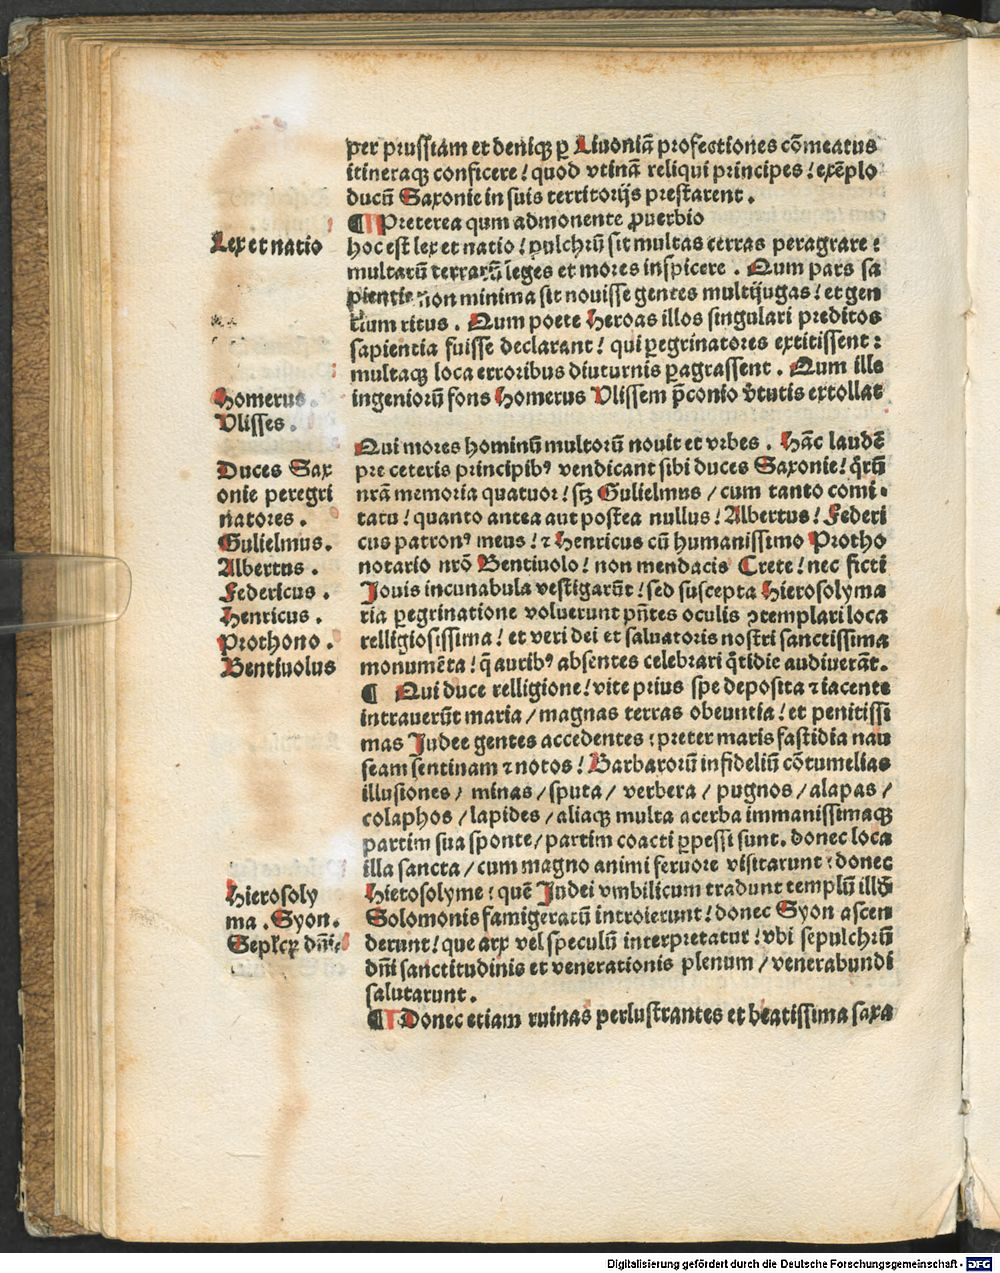 per prussiam et deniqꝫ ꝑ Liuoniā profectiones cōmeatus
itineraqꝫ conficere / quod vtinā reliqui principes / exēplo
ducū Saxonie in suis territorijs prestarent .
¶ Preterea qum admonente ꝓuerbio
Lex et natio
hoc est lex et natio / pulchrū sit multas terras peragrare :
multarū terrarū leges et mores inspicere . Qum pars sa
pientie non minima sit nouisse gentes multijugas / et gen
tium ritus . Qum poete Heroas illos singulari preditos
sapientia fuisse declarant / qui ꝑegrinatores extitissent :
multaqꝫ loca erroribus diuturnis ꝑagrassent . Qum ille
Homerus .
Vlisses .
ingeniorū fons Homerus Vlissem p̄conio v̓tutis extollat
Qui mores hominū multorū nouit et vrbes . Hāc laudē
Duces Sax
onie peregri
natores .
Gulielmus .
Albertus .
Federicus .
Henricus .
Prothono .
Bentiuolus
pre ceteris principibꝰ vendicant sibi duces Saxonie / q̄rū
nrām memoria quatuor / scꝫ Gulielmus / cum tanto comi .
tatu / quanto antea aut postea nullus / Albertus / Federi
cus patronꝰ meus / ⁊ Henricus cū humanissimo Protho
notario nrō Bentiuolo / non mendacis Crete / nec ficti
Jouis incunabula vestigarūt / sed suscepta Hierosolyma
ria ꝑegrinatione voluerunt pn̄tes oculis ꝯtemplari loca
relligiosissima / et veri dei et saluatoris nostri sanctissima
monumēta / q̄ auribꝰ absentes celebrari q̄tidie audiuerāt .
¶ Qui duce relligione / vite prius spe deposita ⁊ iacente
intrauerūt maria / magnas terras obeuntia / et penitissi
mas Judee gentes accedentes : preter maris fastidia nau
seam sentinam ⁊ notos / Barbarorū infideliū cōtumelias
illusiones / minas / sputa / verbera / pugnos / alapas /
colaphos / lapides / aliaqꝫ multa acerba immanissimaqꝫ
partim sua sponte / partim coacti ꝑpessi sunt . donec loca
illa sancta / cum magno animi feruore visitarunt : donec
Hierosoly
ma . Syon .
Seplcꝝ dn̄i
Hierosolyme : quē Judei vmbilicum tradunt templū illd̄
Solomonis famigeratū introierunt / donec Syon ascen
derunt / que arx vel speculū interpretatur / vbi sepulchrū
dn̄i sanctitudinis et venerationis plenum / venerabundi
salutarunt .
¶ Donec etiam ruinas perlustrantes et beatissima saxa
Digitalisierung gefördert durch die Deutsche Forschungsgemeinschaft - DFG